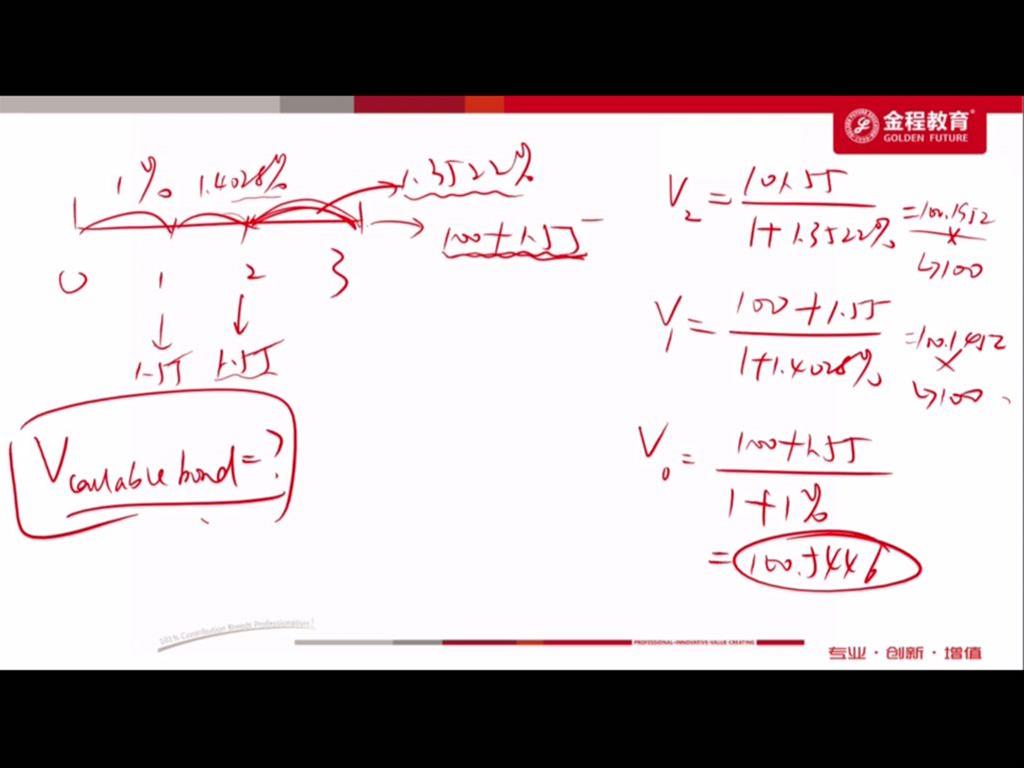 金程教育
GOLDEN FUTURE
1% 1.4028% 1.3522%
100+1.55
0 1 2 3
1.55 1.55
V callable bond = ?
V2 = 101.55 / 1+1.3522% = 100.1952
↳100
V1 = 100+1.55 / 1+1.4028% = 100.1452
↳100
V0 = 100+1.55 / 1+1%
= 100.5446
101% Contribution Breeds Professionalism!
PROFESSIONAL·INNOVATIVE·VALUE CREATING
专业·创新·增值